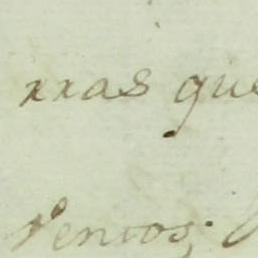 xxas que
ventos;